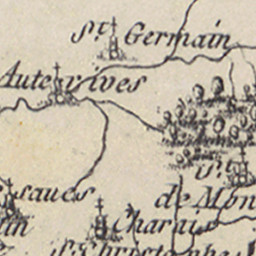 St. Germain
Auterives
St.
saues
de Mon
Charnis
lin
St. Christophe